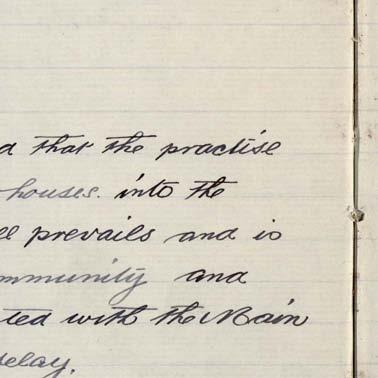 d that the practise
houses. into the
prevails and is
mmunity and
ted with the Main
delay.